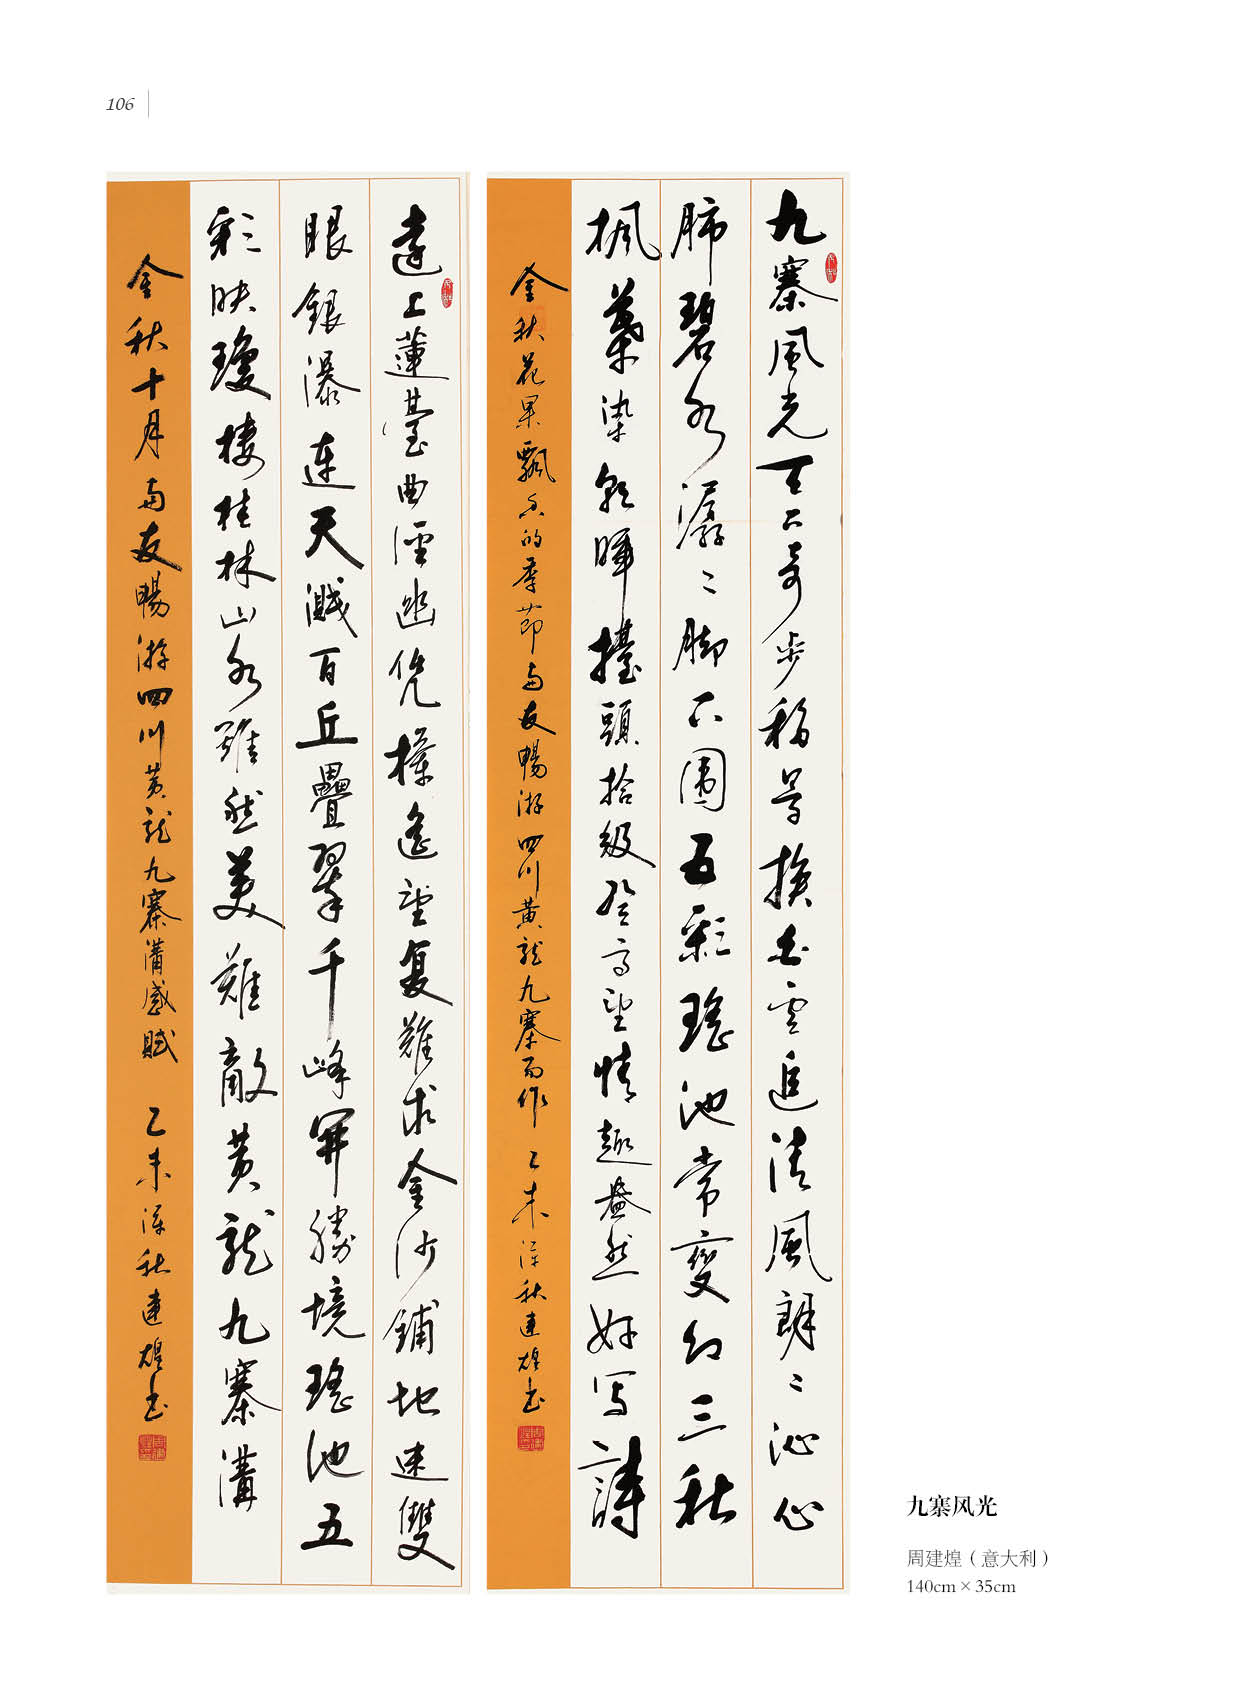 106
九寨風光天下奇步移景換白雲追清風朗々沁心
肺碧水潺々腳下圍五彩瑤池常變幻三秋
楓葉染朝暉擡頭拾級登高望情趣盎然好寫詩
金秋花果飄香的季節與友暢游四川黃龍九寨而作 乙未深秋建煌書
遠上蓮臺曲徑幽憑欄遙望复難求金沙鋪地迷雙
眼銀瀑連天濺百丘疊翠千峰開勝境瑤池五
彩映瓊樓桂林山水雖然美難敵黃龍九寨溝
金秋十月與友暢游四川黃龍九寨溝感賦 乙未深秋建煌書
九寨风光
周建煌（意大利）
140cm × 35cm